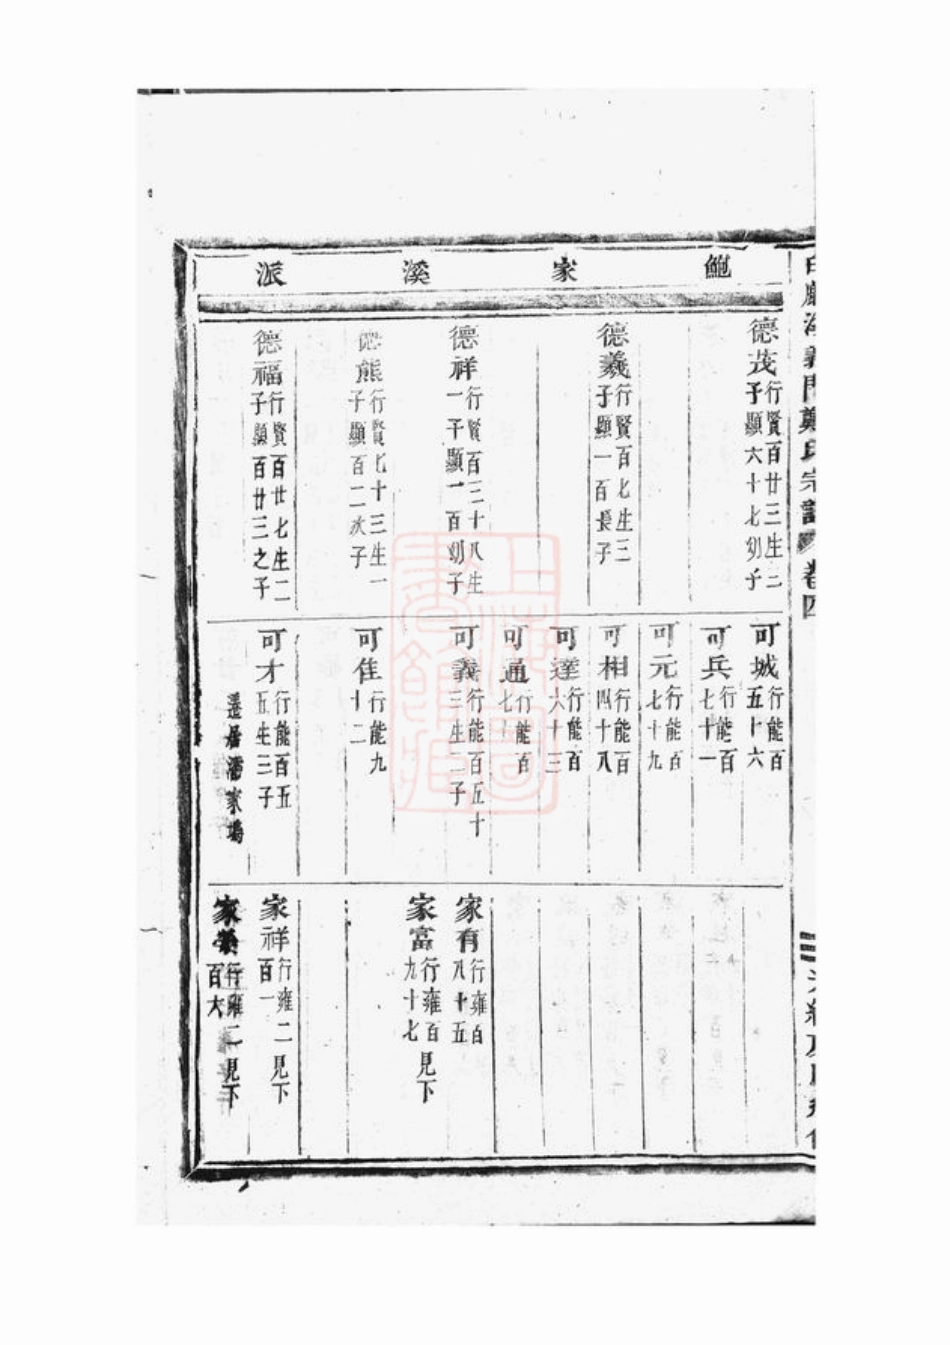 義門鄭氏宗譜 卷四
鮑家溪派
德茂 行賢百廿三生三子顯六十七幼子
德羲 行賢百七生三子顯一百長子
德祥 行賢百三十八生一子顯一百幼子
德熊 行賢七十三生一子顯百二次子
德福 行賢百廿七生二子顯百廿三之子
可城 行能百五十六
可兵 行能百七十一
可元 行能百七十九
可相 行能百四十八
可達 行能百六十三
可通 行能百七十
可義 行能百五十三生二子
可隹 行能九十二
可才 行能百五五生三子
遷居 家塢
家有 行雍百八十五
家富 行雍百九十七見下
家祥 行雍二百一見下
家 行雍二百六見下